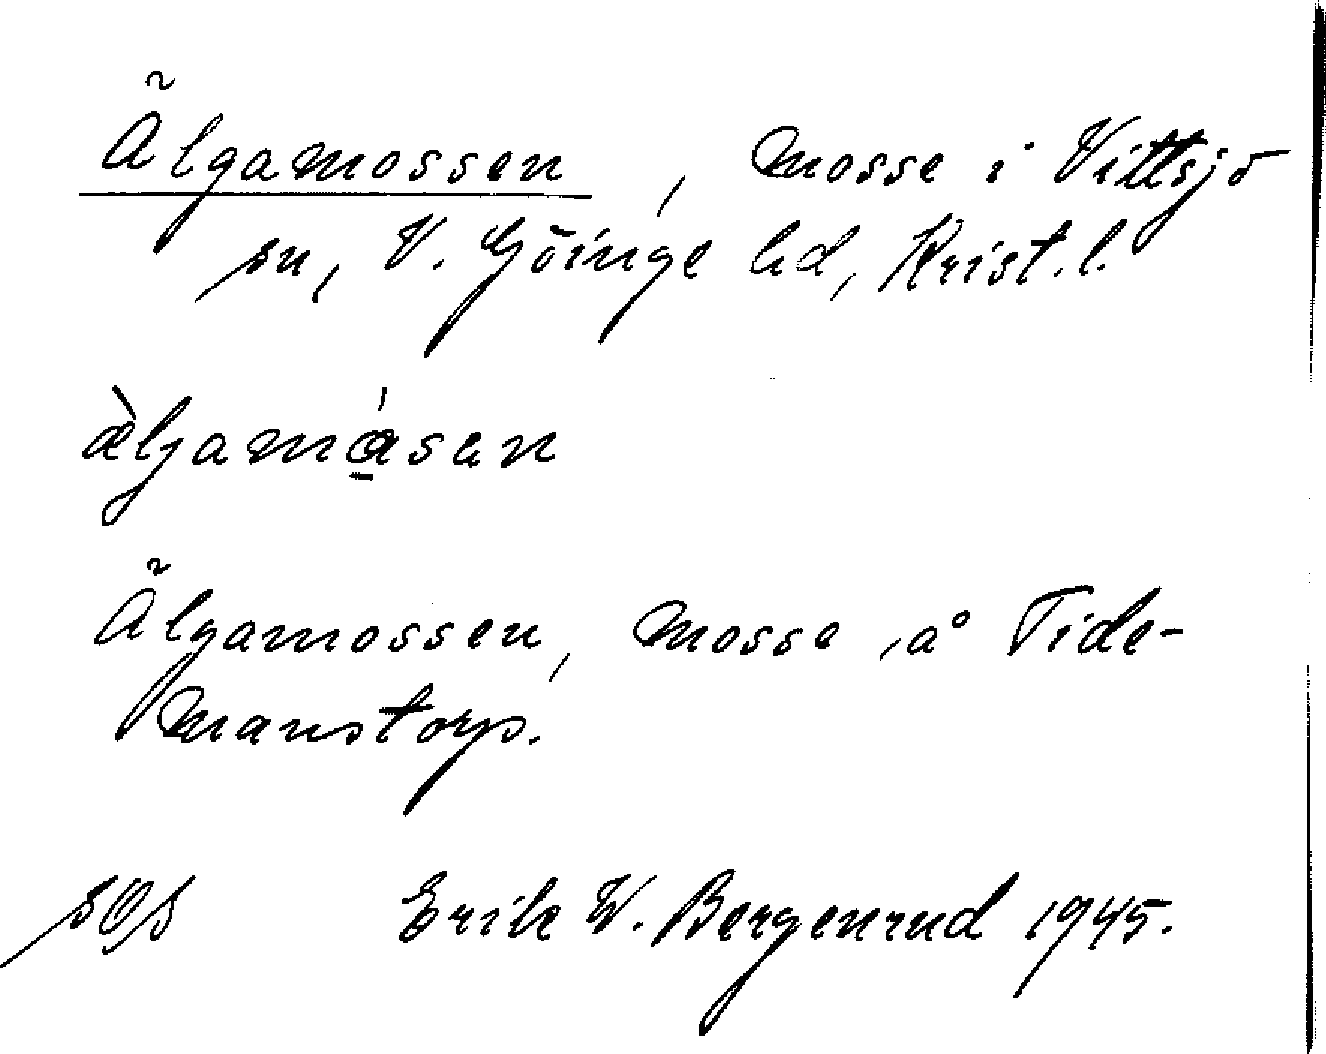 Älgamossen, Mosse i Vittsjö
sn, V. Göinge hd, Krist. l.
æ̀ljamásen
Älgamossen, Mosse, å Tide-
manstorp.
Erik W. Bergenrud 1945.